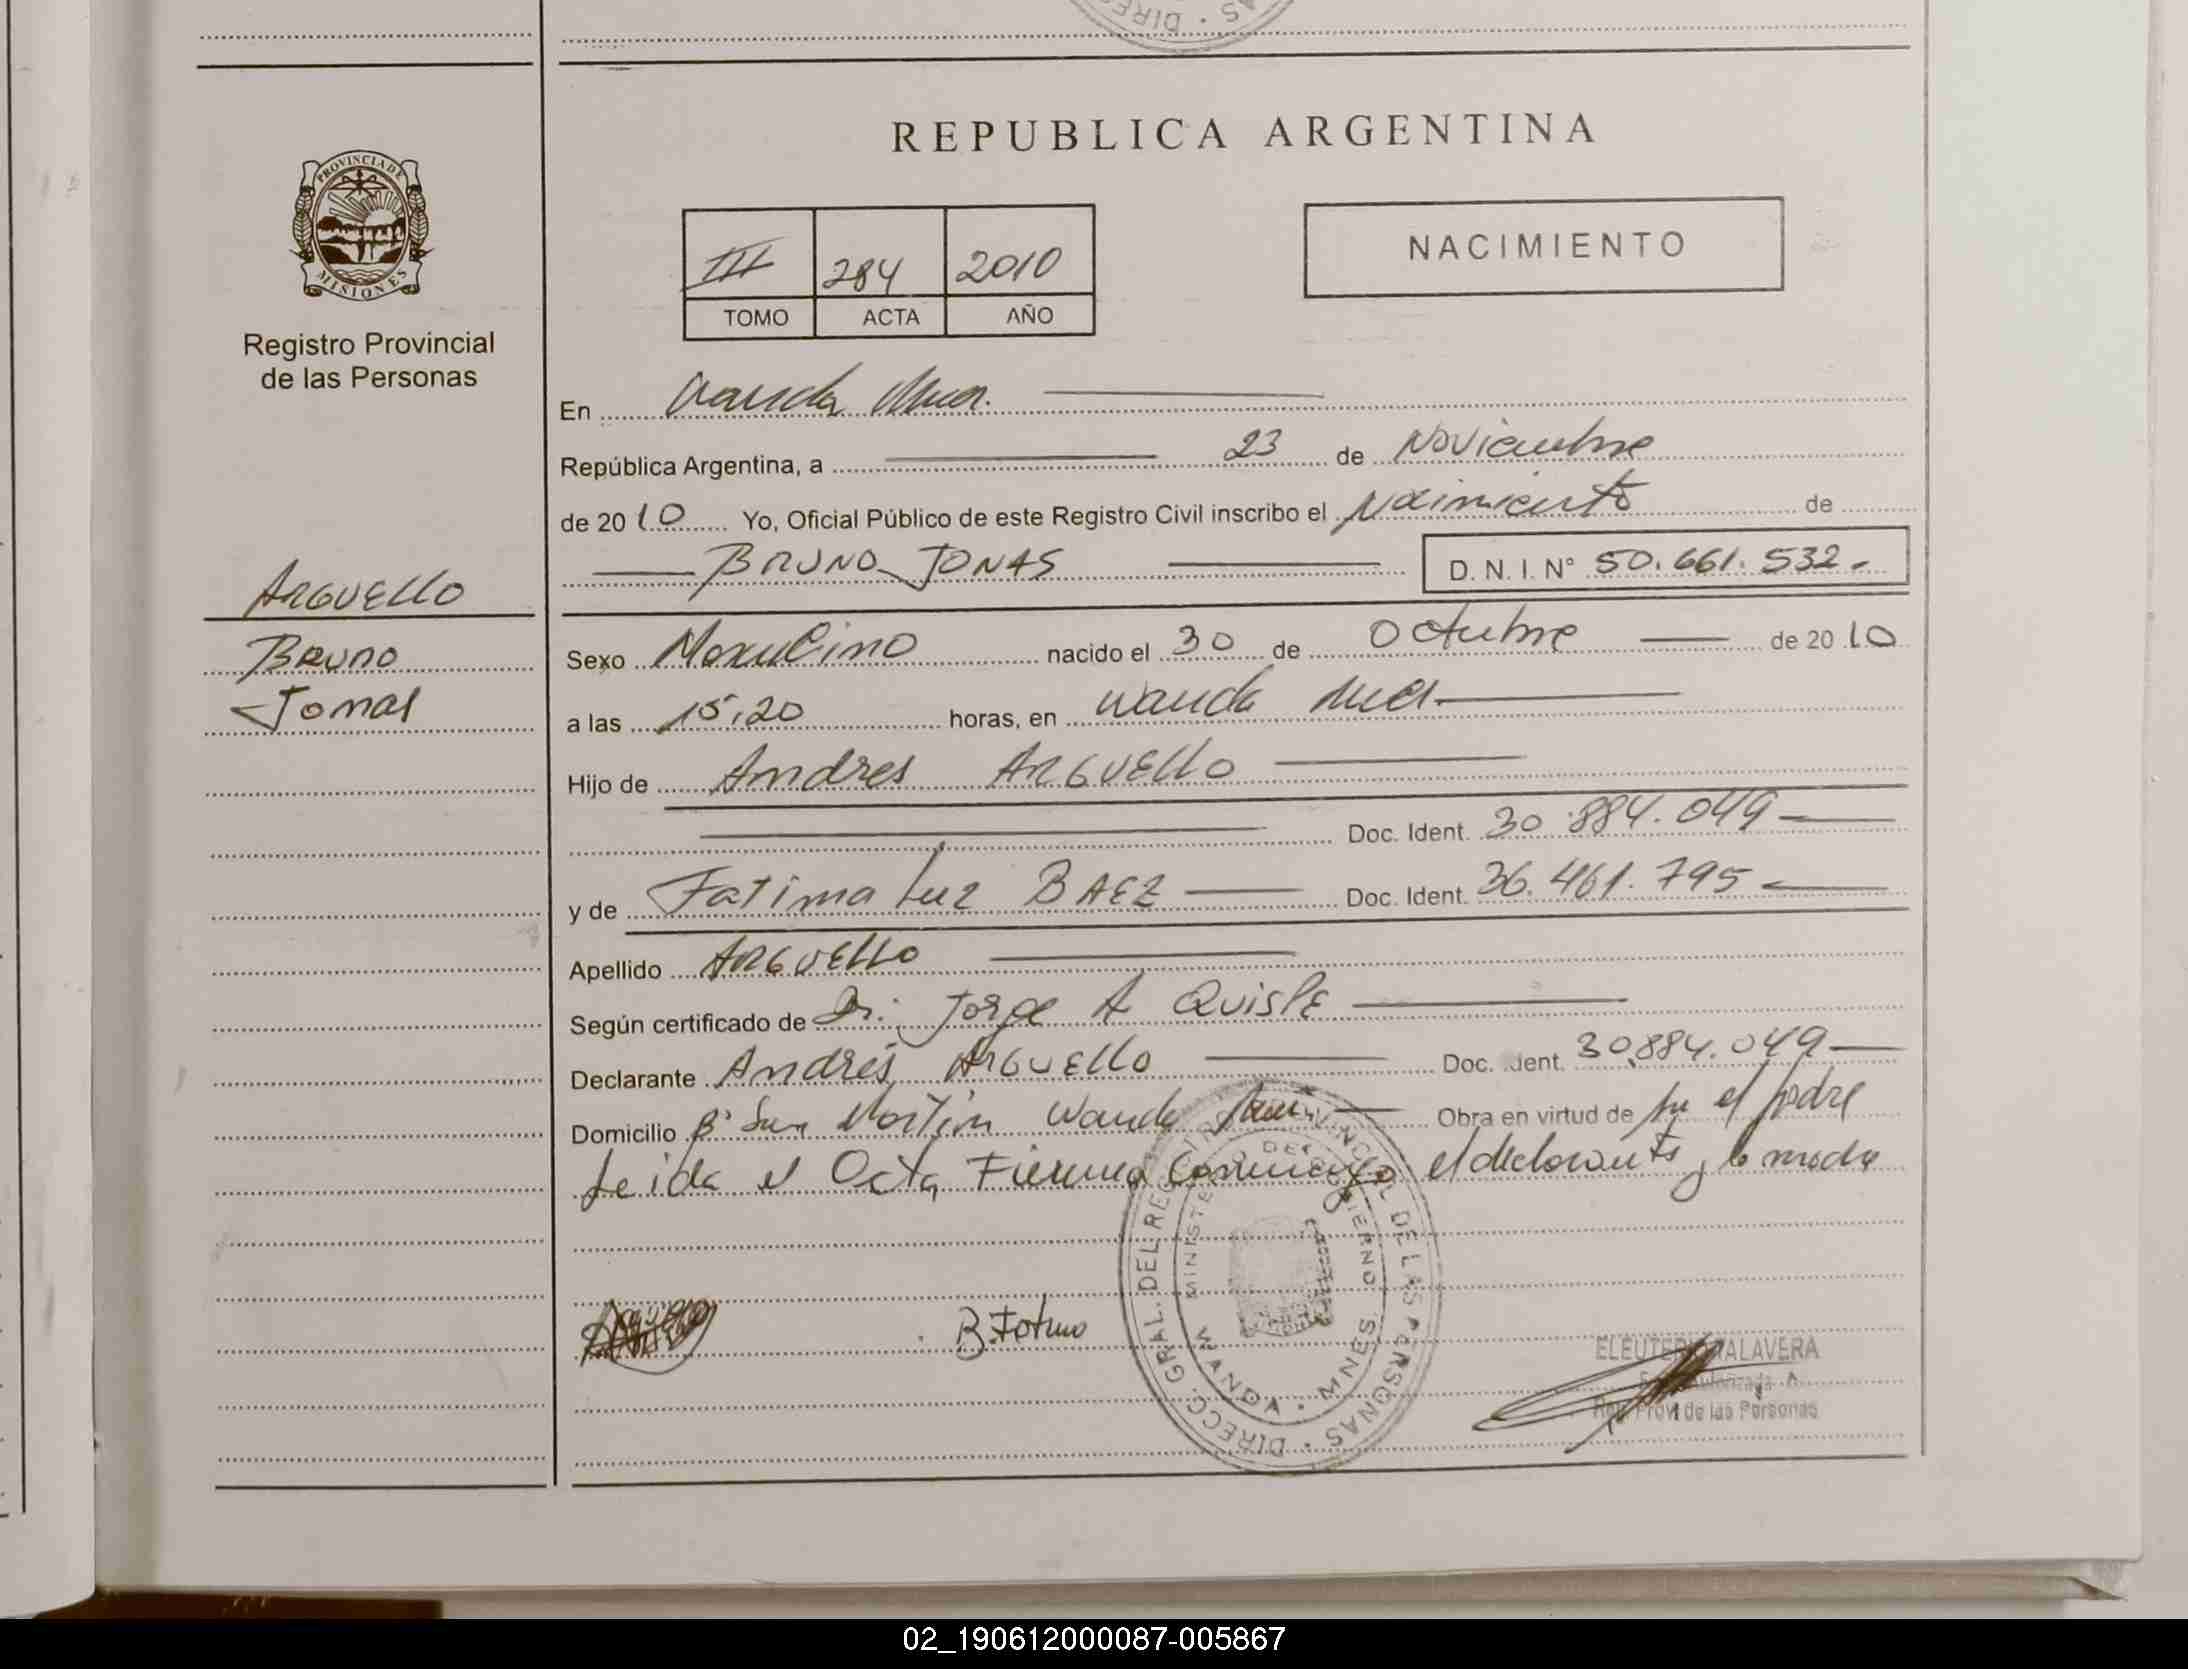 REPUBLICA ARGENTINA
PROVINCIA DE MISIONES
Registro Provincial
de las Personas
III 284 2010
TOMO ACTA AÑO
NACIMIENTO
En Wanda Mnes.
República Argentina, a 23 de Noviembre
de 2010 Yo, Oficial Público de este Registro Civil inscribo el Nacimiento de
BRUNO JONAS D. N. I. N° 50.661.532.-
ARGUELLO
Bruno
Jonas
Sexo Masculino nacido el 30 de Octubre de 2010
a las 15,20 horas, en Wanda Mnes
Hijo de Andres ARGUELLO
Doc. Ident. 30.884.049
y de Fatima Luz BAEZ Doc. Ident. 36.461.795
Apellido ARGUELLO
Según certificado de Dr. Jorge A QUISPE
Declarante Andrés ARGUELLO Doc. Ident. 30.884.049
Domicilio B° San Martin Wanda Mnes Obra en virtud de ser el padre
Leida el Acta, Firman Conmigo, el declarante y la madre
DIRECC. GRAL. DEL REGISTRO PROVINCIAL DE LAS PERSONAS
MINISTERIO DE GOBIERNO
WANDA - MNES.
B. Fatima
ELEUTERIO TALAVERA
Autorizada
Reg. Prov. de las Personas
02_190612000087-005867